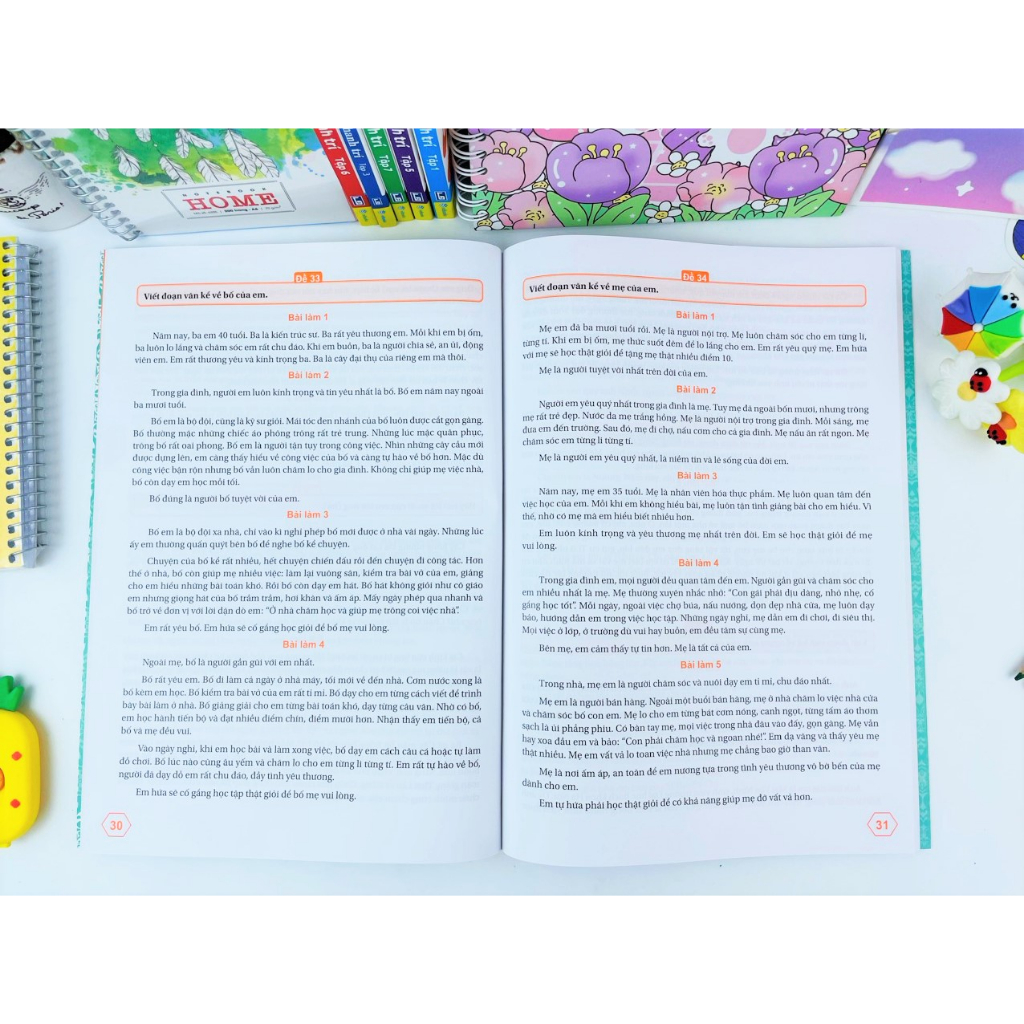 NOTEBOOK
HOME
Tập 6
Tập 3
Tập 7
Tập 5
Tập 1
Đề 33
Viết đoạn văn kể về bố của em.
Bài làm 1
Năm nay, ba em 40 tuổi. Ba là kiến trúc sư. Ba rất yêu thương em. Mỗi khi em bị ốm,
ba luôn lo lắng và chăm sóc em rất chu đáo. Khi em buồn, ba là người chia sẻ, an ủi, động
viên em. Em rất thương yêu và kính trọng ba. Ba là cây đại thụ của riêng em mà thôi.
Bài làm 2
Trong gia đình, người em luôn kính trọng và tin yêu nhất là bố. Bố em năm nay ngoài
ba mươi tuổi.
Bố em là bộ đội, cũng là kỹ sư giỏi. Mái tóc đen nhánh của bố luôn được cắt gọn gàng.
Bố thường mặc những chiếc áo phông trông rất trẻ trung. Những lúc mặc quân phục,
trông bố rất oai phong. Bố em là người tận tụy trong công việc. Nhìn những cây cầu mới
được dựng lên, em càng thấy hiểu về công việc của bố và càng tự hào về bố hơn. Mặc dù
công việc bận rộn nhưng bố vẫn luôn chăm lo cho gia đình. Không chỉ giúp mẹ việc nhà,
bố còn dạy em học mỗi tối.
Bố đúng là người bố tuyệt vời của em.
Bài làm 3
Bố em là bộ đội xa nhà, chỉ vào kì nghỉ phép bố mới được ở nhà vài ngày. Những lúc
ấy em thường quấn quýt bên bố để nghe bố kể chuyện.
Chuyện của bố kể rất nhiều, hết chuyện chiến đấu rồi đến chuyện đi công tác. Hơn
thế ở nhà, bố còn giúp mẹ nhiều việc: làm lại vườn sân, kiểm tra bài vở của em, giảng
cho em hiểu những bài toán khó. Rồi bố còn dạy em hát. Bố hát không giỏi như cô giáo
em nhưng giọng hát của bố trầm trầm, hơi khàn và ấm áp. Mấy ngày phép qua nhanh và
bố trở về đơn vị với lời dặn dò em: “Ở nhà chăm học và giúp mẹ trông coi việc nhà”.
Em rất yêu bố. Em hứa sẽ cố gắng học giỏi để bố mẹ vui lòng.
Bài làm 4
Ngoài mẹ, bố là người gần gũi với em nhất.
Bố rất yêu em. Bố đi làm cả ngày ở nhà máy, tối mới về đến nhà. Cơm nước xong là
bố kèm em học. Bố kiểm tra bài vở của em rất tỉ mỉ. Bố dạy cho em từng cách viết để trình
bày bài làm ở nhà. Bố giảng giải cho em từng bài toán khó, dạy từng câu văn. Nhờ có bố,
em học hành tiến bộ và đạt nhiều điểm chín, điểm mười hơn. Nhận thấy em tiến bộ, cả
bố và mẹ đều vui.
Vào ngày nghỉ, khi em học bài và làm xong việc, bố dạy em cách câu cá hoặc tự làm
đồ chơi. Bố lúc nào cũng âu yếm và chăm lo cho em từng li từng tí. Em rất tự hào về bố,
người đã dạy dỗ em rất chu đáo, đầy tình yêu thương.
Em hứa sẽ cố gắng học tập thật giỏi để bố mẹ vui lòng.
30
Đề 34
Viết đoạn văn kể về mẹ của em.
Bài làm 1
Mẹ em đã ba mươi tuổi rồi. Mẹ là người nội trợ. Mẹ luôn chăm sóc cho em từng li,
từng tí. Khi em bị ốm, mẹ thức suốt đêm để lo lắng cho em. Em rất yêu quý mẹ. Em hứa
với mẹ sẽ học thật giỏi để tặng mẹ thật nhiều điểm 10.
Mẹ là người tuyệt vời nhất trên đời của em.
Bài làm 2
Người em yêu quý nhất trong gia đình là mẹ. Tuy mẹ đã ngoài bốn mươi, nhưng trông
mẹ rất trẻ đẹp. Nước da mẹ trắng hồng. Mẹ là người nội trợ trong gia đình. Mỗi sáng, mẹ
đưa em đến trường. Sau đó, mẹ đi chợ, nấu cơm cho cả gia đình. Mẹ nấu ăn rất ngon. Mẹ
chăm sóc em từng li từng tí.
Mẹ là người em yêu quý nhất, là niềm tin và lẽ sống của đời em.
Bài làm 3
Năm nay, mẹ em 35 tuổi. Mẹ là nhân viên hóa thực phẩm. Mẹ luôn quan tâm đến
việc học của em. Mỗi khi em không hiểu bài, mẹ luôn tận tình giảng bài cho em hiểu. Vì
thế, nhờ có mẹ mà em hiểu biết nhiều hơn.
Em luôn kính trọng và yêu thương mẹ nhất trên đời. Em sẽ học thật giỏi để mẹ
vui lòng.
Bài làm 4
Trong gia đình em, mọi người đều quan tâm đến em. Người gần gũi và chăm sóc cho
em nhiều nhất là mẹ. Mẹ thường xuyên nhắc nhở: “Con gái phải dịu dàng, nhỏ nhẹ, cố
gắng học tốt”. Mỗi ngày, ngoài việc chợ búa, nấu nướng, dọn dẹp nhà cửa, mẹ luôn dạy
bảo, hướng dẫn em trong việc học tập. Những ngày nghỉ, mẹ dẫn em đi chơi, đi siêu thị.
Mọi việc ở lớp, ở trường dù vui hay buồn, em đều tâm sự cùng mẹ.
Bên mẹ, em cảm thấy tự tin hơn. Mẹ là tất cả của em.
Bài làm 5
Trong nhà, mẹ em là người chăm sóc và nuôi dạy em tỉ mỉ, chu đáo nhất.
Mẹ em là người bán hàng. Ngoài một buổi bán hàng, mẹ ở nhà chăm lo việc nhà cửa
và chăm sóc bố con em. Mẹ lo cho em từng bát cơm nóng, canh ngọt, từng tấm áo thơm
sạch là ủi phẳng phiu. Có bàn tay mẹ, mọi việc trong nhà đâu vào đấy, gọn gàng. Mẹ vẫn
hay xoa đầu em và bảo: “Con phải chăm học và ngoan nhé!”. Em dạ vâng và thấy yêu mẹ
thật nhiều. Mẹ em vất vả lo toan việc nhà nhưng mẹ chẳng bao giờ than vãn.
Mẹ là nơi ấm áp, an toàn để em nương tựa trong tình yêu thương vô bờ bến của mẹ
dành cho em.
Em tự hứa phải học thật giỏi để có khả năng giúp mẹ đỡ vất vả hơn.
31